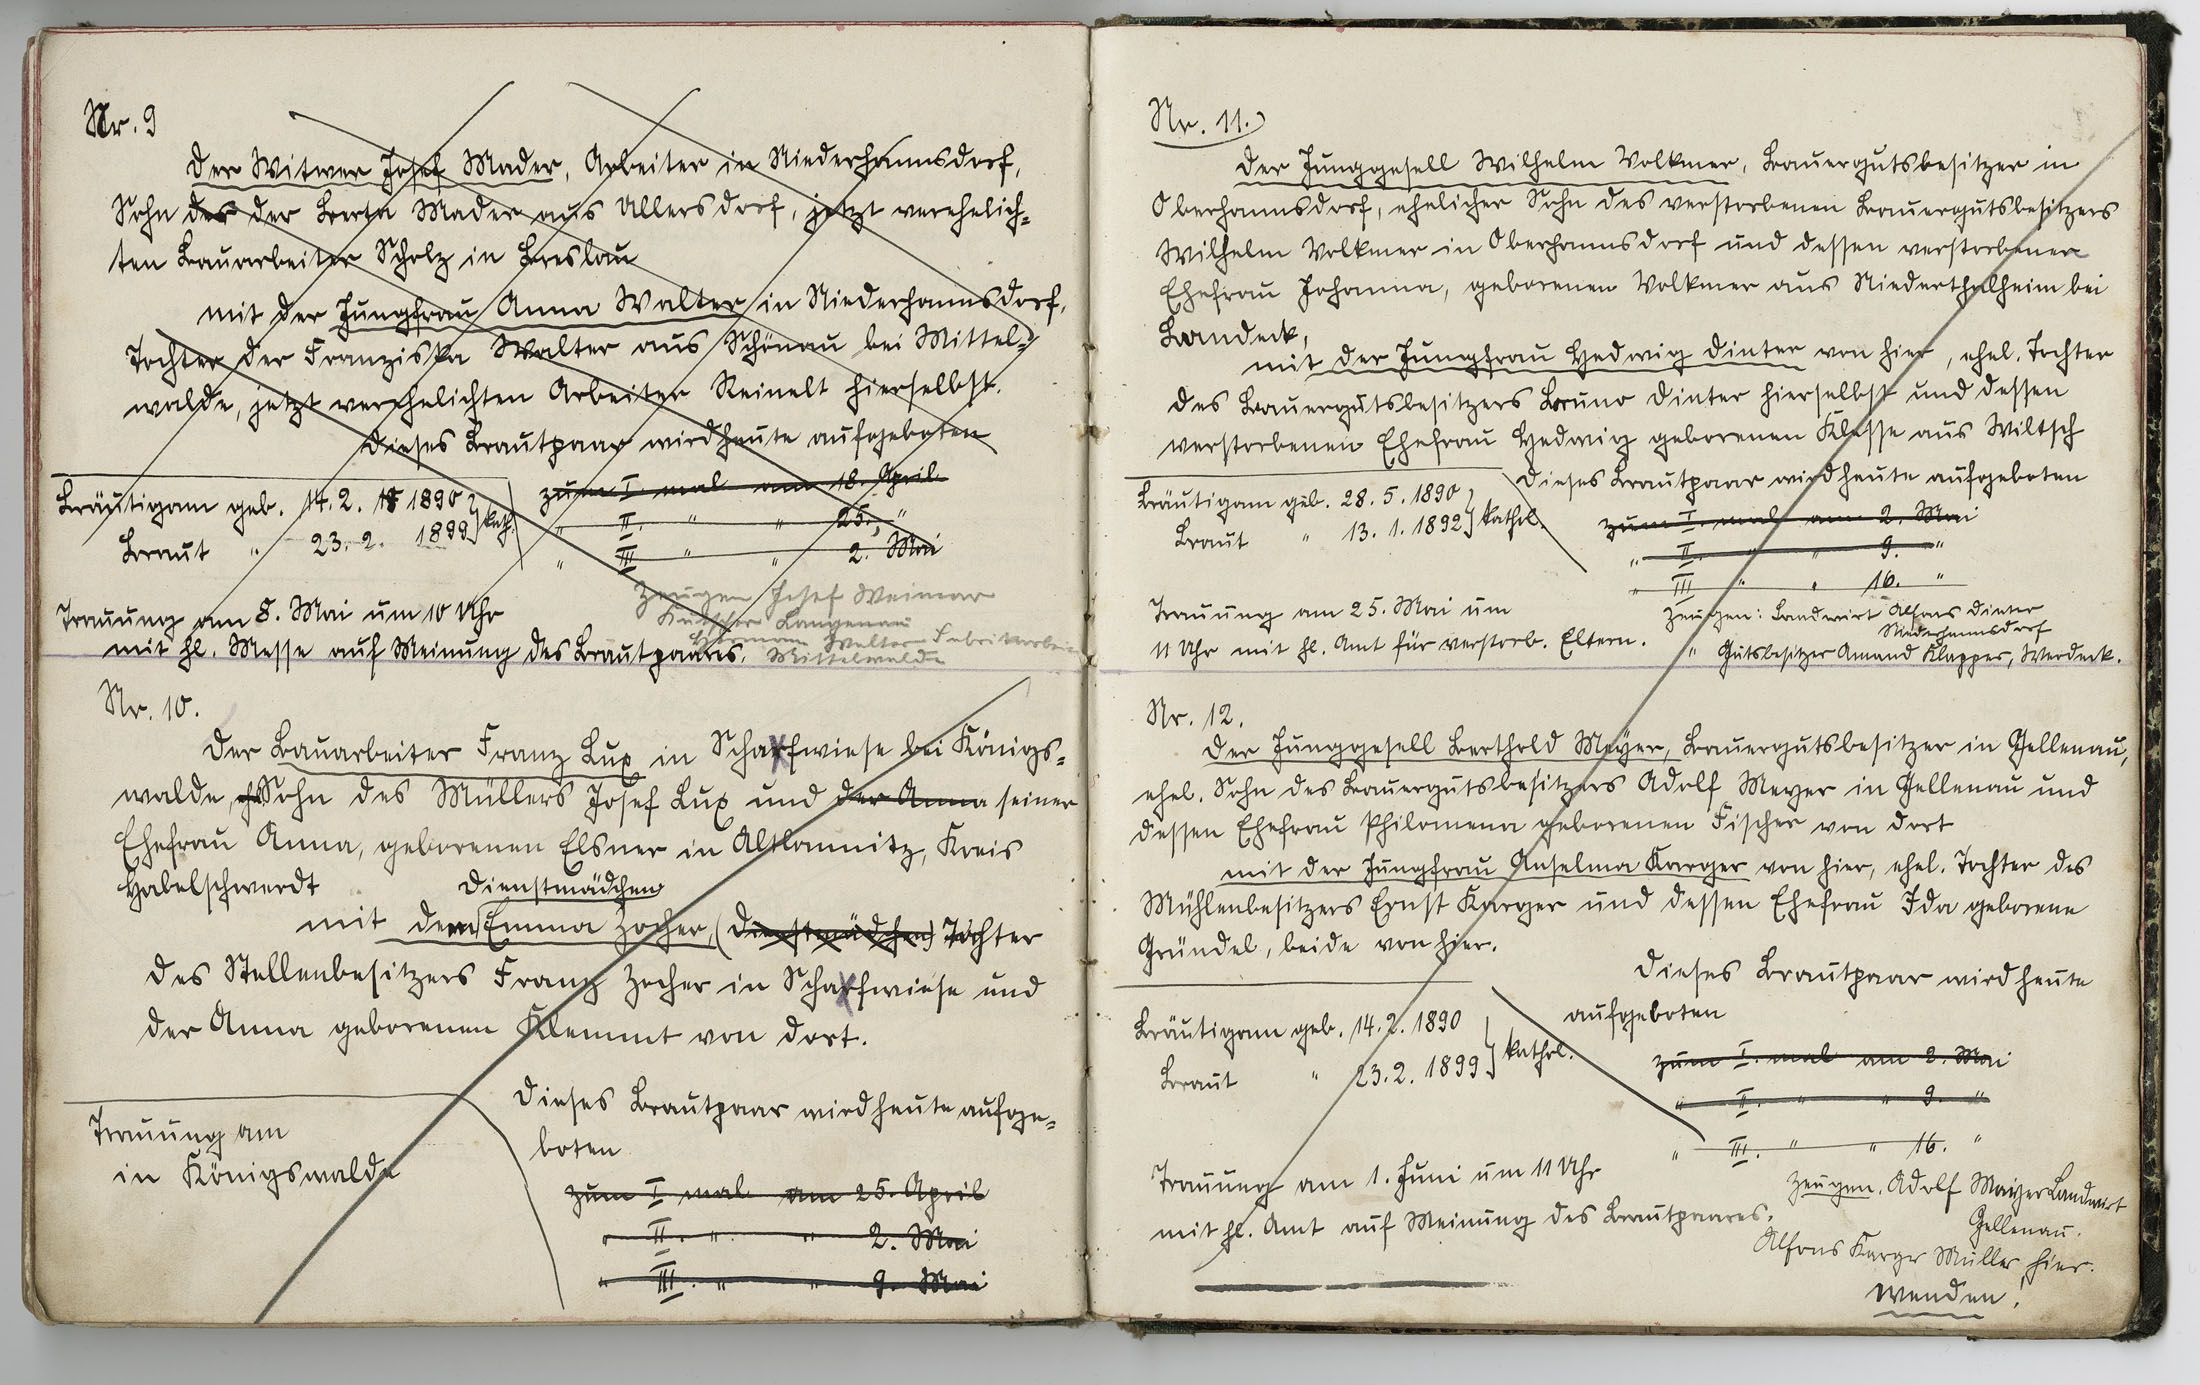 Nr. 9
Der Witwer Josef Mader, Arbeiter in Niederhannsdorf,
Sohn des der Berta Mader aus Ullersdorf, jetzt verehelich=
ten Bauarbeiter Scholz in Breslau
mit der Jungfrau Anna Walter in Niederhannsdorf,
Tochter der Franziska Walter aus Schönau bei Mittel=
walde, jetzt verehelichten Arbeiter Reinelt hierselbst.
Dieses Brautpaar wird heute aufgeboten
Bräutigam geb. 14. 2. 1890 } kath.
Braut " 23. 2. 1899
zum I mal am 18. April
" II. " " 25. "
" III " " 2. Mai
Trauung am 8. Mai um 10 Uhr
mit hl. Messe auf Meinung des Brautpaares.
Zeugen Josef Weimar
Kutscher Langenau
Hermann Walter Fabrikarbei
Mittelwalde
Nr. 10.
Der Bauarbeiter Franz Lux in Scharfwiese bei Königs=
walde, Sohn des Müllers Josef Lux und der Anna seiner
Ehefrau Anna, geborenen Elsner in Altlomnitz, Kreis
Habelschwerdt
Dienstmädchen
mit dem Emma Zocher, (Dienstmädchen) Tochter
des Stellenbesitzers Franz Zocher in Scharfwiese und
der Anna geborenen Klemmt von dort.
Dieses Brautpaar wird heute aufge=
boten
Trauung am
in Königswalde
zum I mal am 25. April
" II. " " 2. Mai
" III. " " 9. Mai
Nr. 11.)
Der Junggesell Wilhelm Volkmer, Bauergutsbesitzer in
Oberhannsdorf, ehelicher Sohn des verstorbenen Bauergutsbesitzers
Wilhelm Volkmer in Oberhannsdorf und dessen verstorbener
Ehefrau Johanna, geborenen Volkmer aus Niederthalheim bei
Landeck,
mit der Jungfrau Hedwig Dinter von hier, ehel. Tochter
des Bauergutsbesitzers Bruno Dinter hierselbst und dessen
verstorbenen Ehefrau Hedwig geborenen Klesse aus Wiltsch
Dieses Brautpaar wird heute aufgeboten
Bräutigam geb. 28. 5. 1890 } kathol.
Braut " 13. 1. 1892
zum I. mal am 2. Mai
" II. " " 9. "
" III " " 16. "
Trauung am 25. Mai um
11 Uhr mit hl. Amt für verstorb. Eltern.
Zeugen: Landwirt Alfons Dinter
Niederhannsdorf
" Gutsbesitzer Amand Klapper, Werdeck.
Nr. 12.
Der Junggesell Berthold Meyer, Bauergutsbesitzer in Gellenau,
ehel. Sohn des Bauergutsbesitzers Adolf Meyer in Gellenau und
dessen Ehefrau Philomena geborenen Fischer von dort
mit der Jungfrau Anselma Karger von hier, ehel. Tochter des
Mühlenbesitzers Ernst Karger und dessen Ehefrau Ida geborene
Gründel, beide von hier.
Dieses Brautpaar wird heute
aufgeboten
Bräutigam geb. 14. 2. 1890 } kathol.
Braut " 23. 2. 1899
zum I. mal am 2. Mai
" II. " " 9. "
" III. " " 16. "
Trauung am 1. Juni um 11 Uhr
mit hl. Amt auf Meinung des Brautpaares.
Zeugen. Adolf Mayer Landwirt
Gellenau.
Alfons Karger Müller, hier.
wenden!